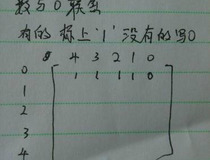 数与0联立
有的标上'1'没有的写0
4 3 2 1 0
0 1 1 1 1 0
1
2
3
4